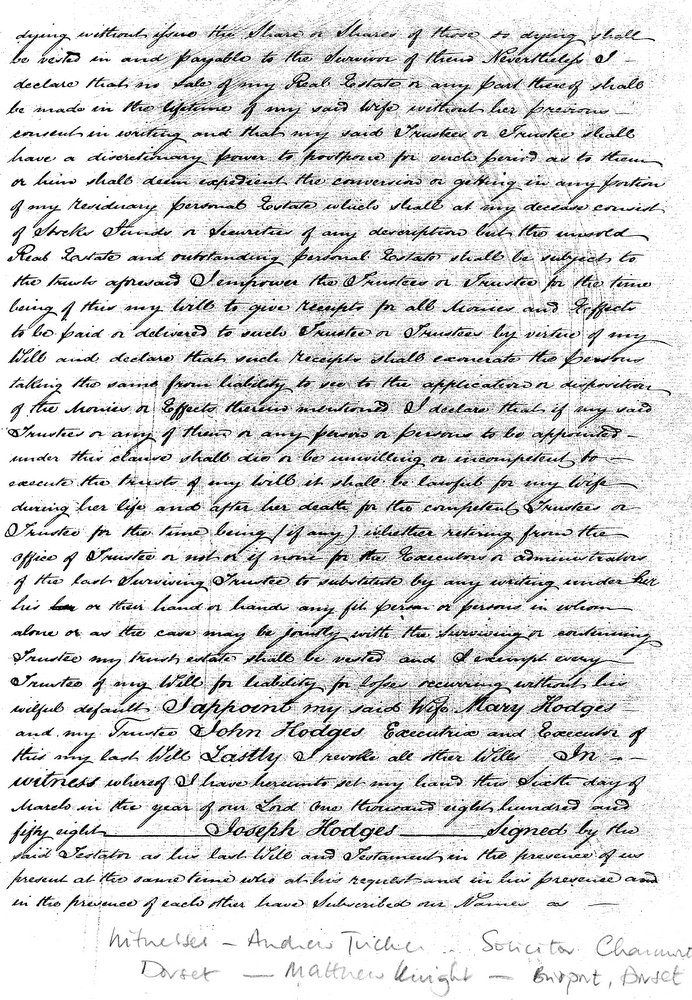 dying without issue the Share or Shares of those so dying shall
be vested in and payable to the Survivor of them Nevertheless I —
declare that no sale of my Real Estate or any Part thereof shall
be made in the lifetime of my said Wife without her previous —
consent in writing and that my said Trustees or Trustee shall
have a discretionary power to postpone for such period as to them
or him shall deem expedient the conversion or getting in any portion
of my residuary Personal Estate which shall at my decease consist
of Stocks Funds or Securities of any description but the unsold
Real Estate and outstanding Personal Estate shall be subject to
the trusts aforesaid I empower the Trustees or Trustee for the time
being of this my Will to give receipts for all Monies and Effects
to be paid or delivered to such Trustee or Trustees by virtue of my
Will and declare that such receipts shall exonerate the Persons
taking the same from liability to see to the application or disposition
of the Monies or Effects therein mentioned I declare that if my said
Trustees or any of them or any person or Persons to be appointed —
under this clause shall die or be unwilling or incompetent to —
execute the trusts of my Will it shall be lawful for my Wife
during her life and after her death for the competent Trustees or
Trustee for the time being (if any) whether retiring from the
office of Trustee or not or if none for the Executors or administrators
of the last Surviving Trustee to substitute by any writing under her
his or their hand or hands any fit Person or Persons in whom
alone or as the case may be jointly with the Surviving or continuing
Trustee my trust estate shall be vested and I exempt every —
Trustee of my Will for liability for losses occurring without his
wilful default I appoint my said Wife Mary Hodges —
and my Trustee John Hodges Executrix and Executor of
this my last Will Lastly I revoke all other Wills In — —
witness whereof I have hereunto set my hand this Sixth day of
March in the year of our Lord One thousand eight hundred and
fifty eight ——— Joseph Hodges ——— Signed by the
said Testator as his last Will and Testament in the presence of us
present at the same time who at his request and in his Presence and
in the presence of each other have Subscribed our Names as —
Witnesses — Andrew Tucker — Solicitor
Dorset — Matthew Knight — Dorset